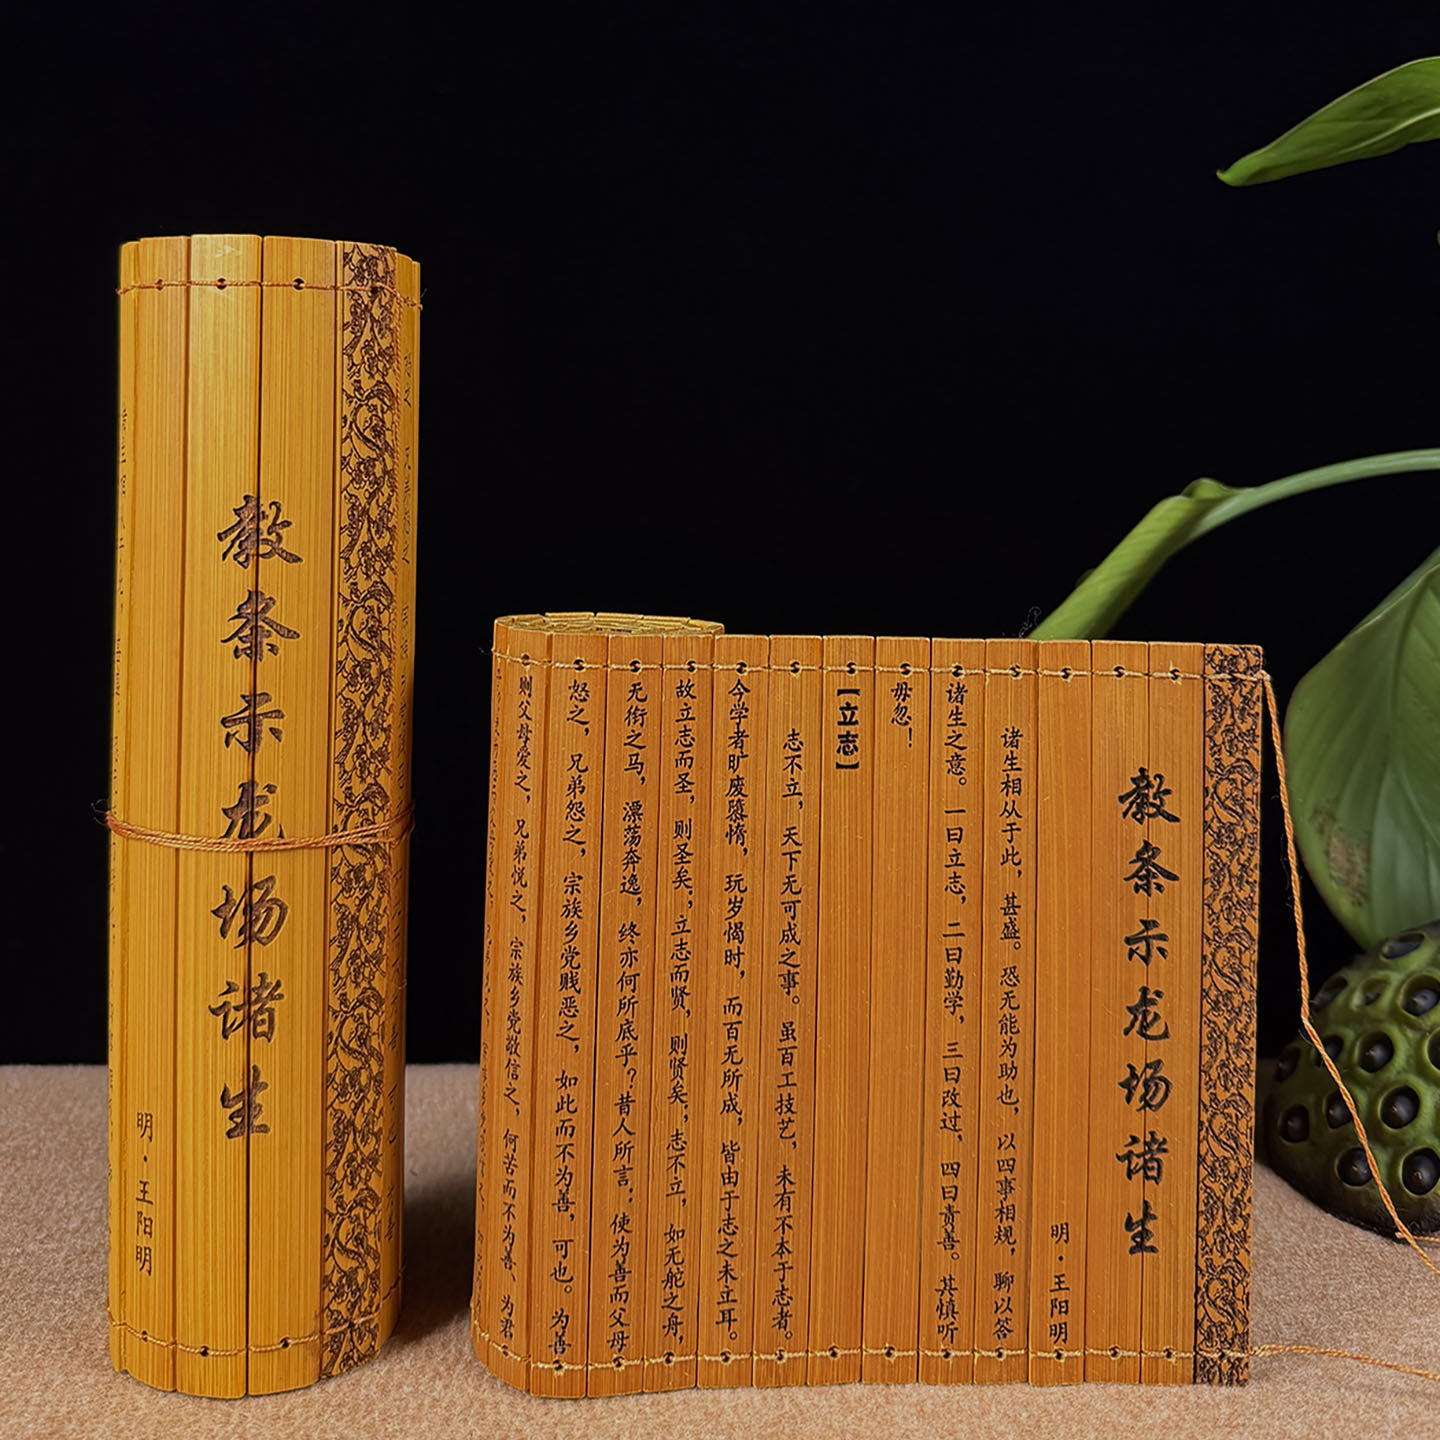 教条示龙场诸生
明·王阳明
教条示龙场诸生
明·王阳明
诸生相从于此，甚盛。恐无能为助也，以四事相规，聊以答
诸生之意。一曰立志，二曰勤学，三曰改过，四曰责善。其慎听
毋忽！
【立志】
志不立，天下无可成之事。虽百工技艺，未有不本于志者。
今学者旷废隳惰，玩岁愒时，而百无所成，皆由于志之未立耳。
故立志而圣，则圣矣；立志而贤，则贤矣；志不立，如无舵之舟，
无衔之马，漂荡奔逸，终亦何所底乎？昔人所言：使为善而父母
怒之，兄弟怨之，宗族乡党贱恶之，如此而不为善，可也。为善
则父母爱之，兄弟悦之，宗族乡党敬信之，何苦而不为善、为君